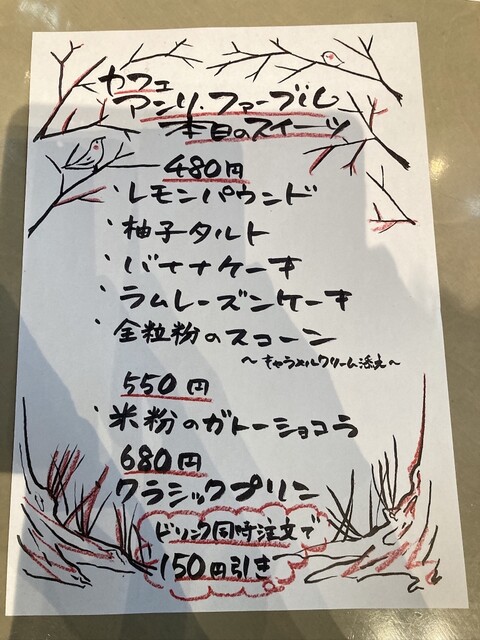 カフェ
アンリ・ファーブル
本日のスイーツ
480円
・レモンパウンド
・柚子タルト
・バナナケーキ
・ラムレーズンケーキ
・全粒粉のスコーン
〜キャラメルクリーム添え〜
550円
・米粉のガトーショコラ
680円
クラシックプリン
ドリンク同時注文で
150円引き